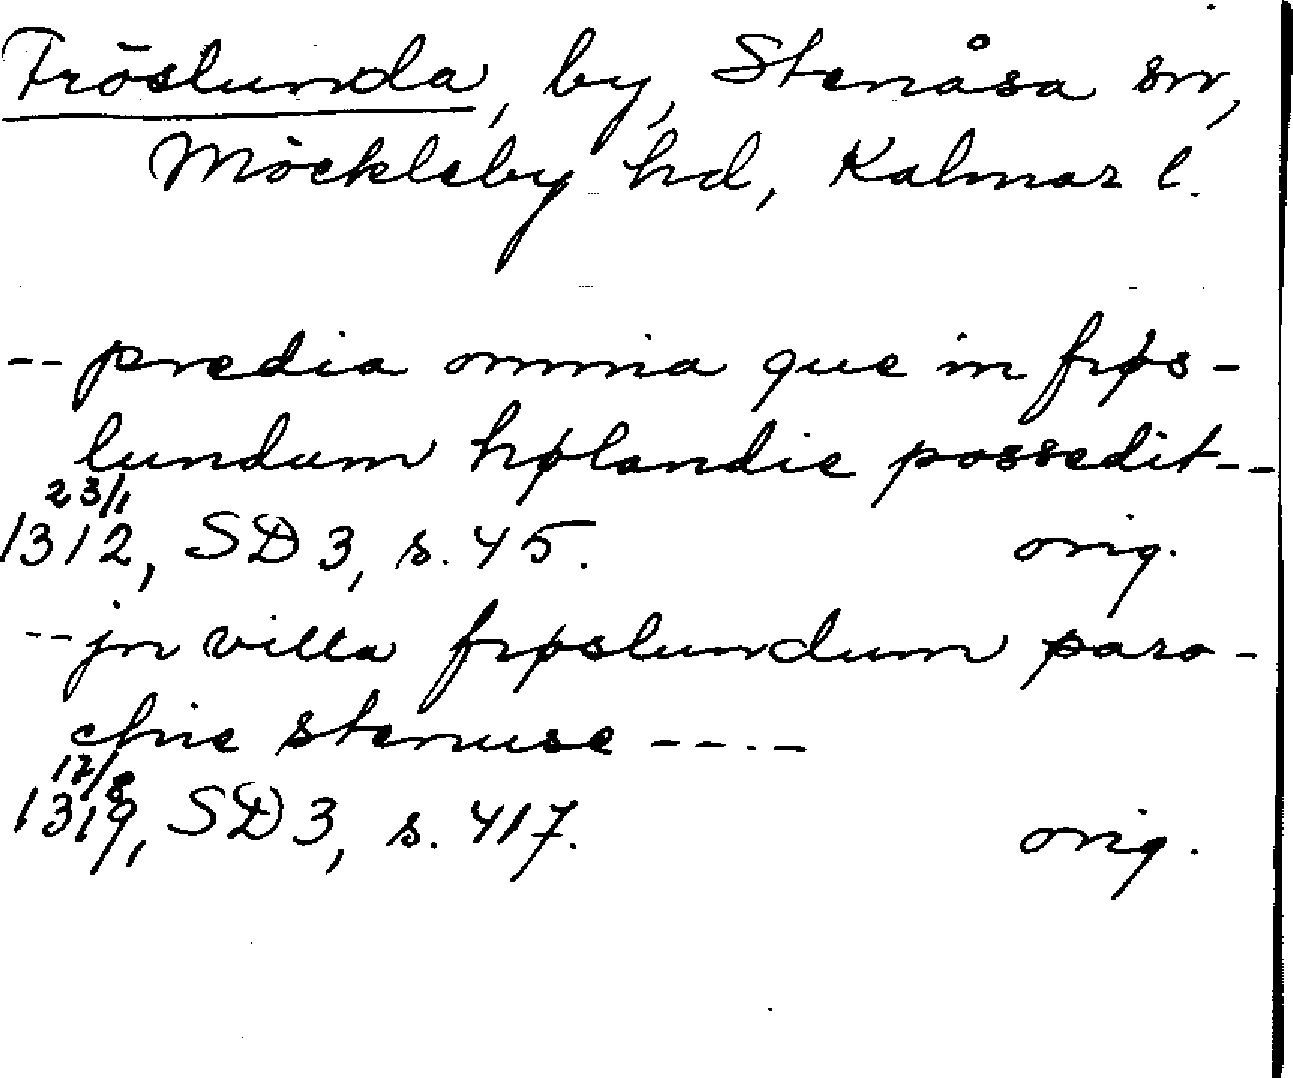 Fröslunda, by, Stenåsa sn,
Möckleby hd, Kalmar l.
-- predia omnia que in frøs-
lundum hølandie possedit--
23/1
1312, SD 3, s. 45. orig.
-- jn villa frøslundum paro-
chie stenuse ----
17/8
1319, SD 3, s. 417. orig.